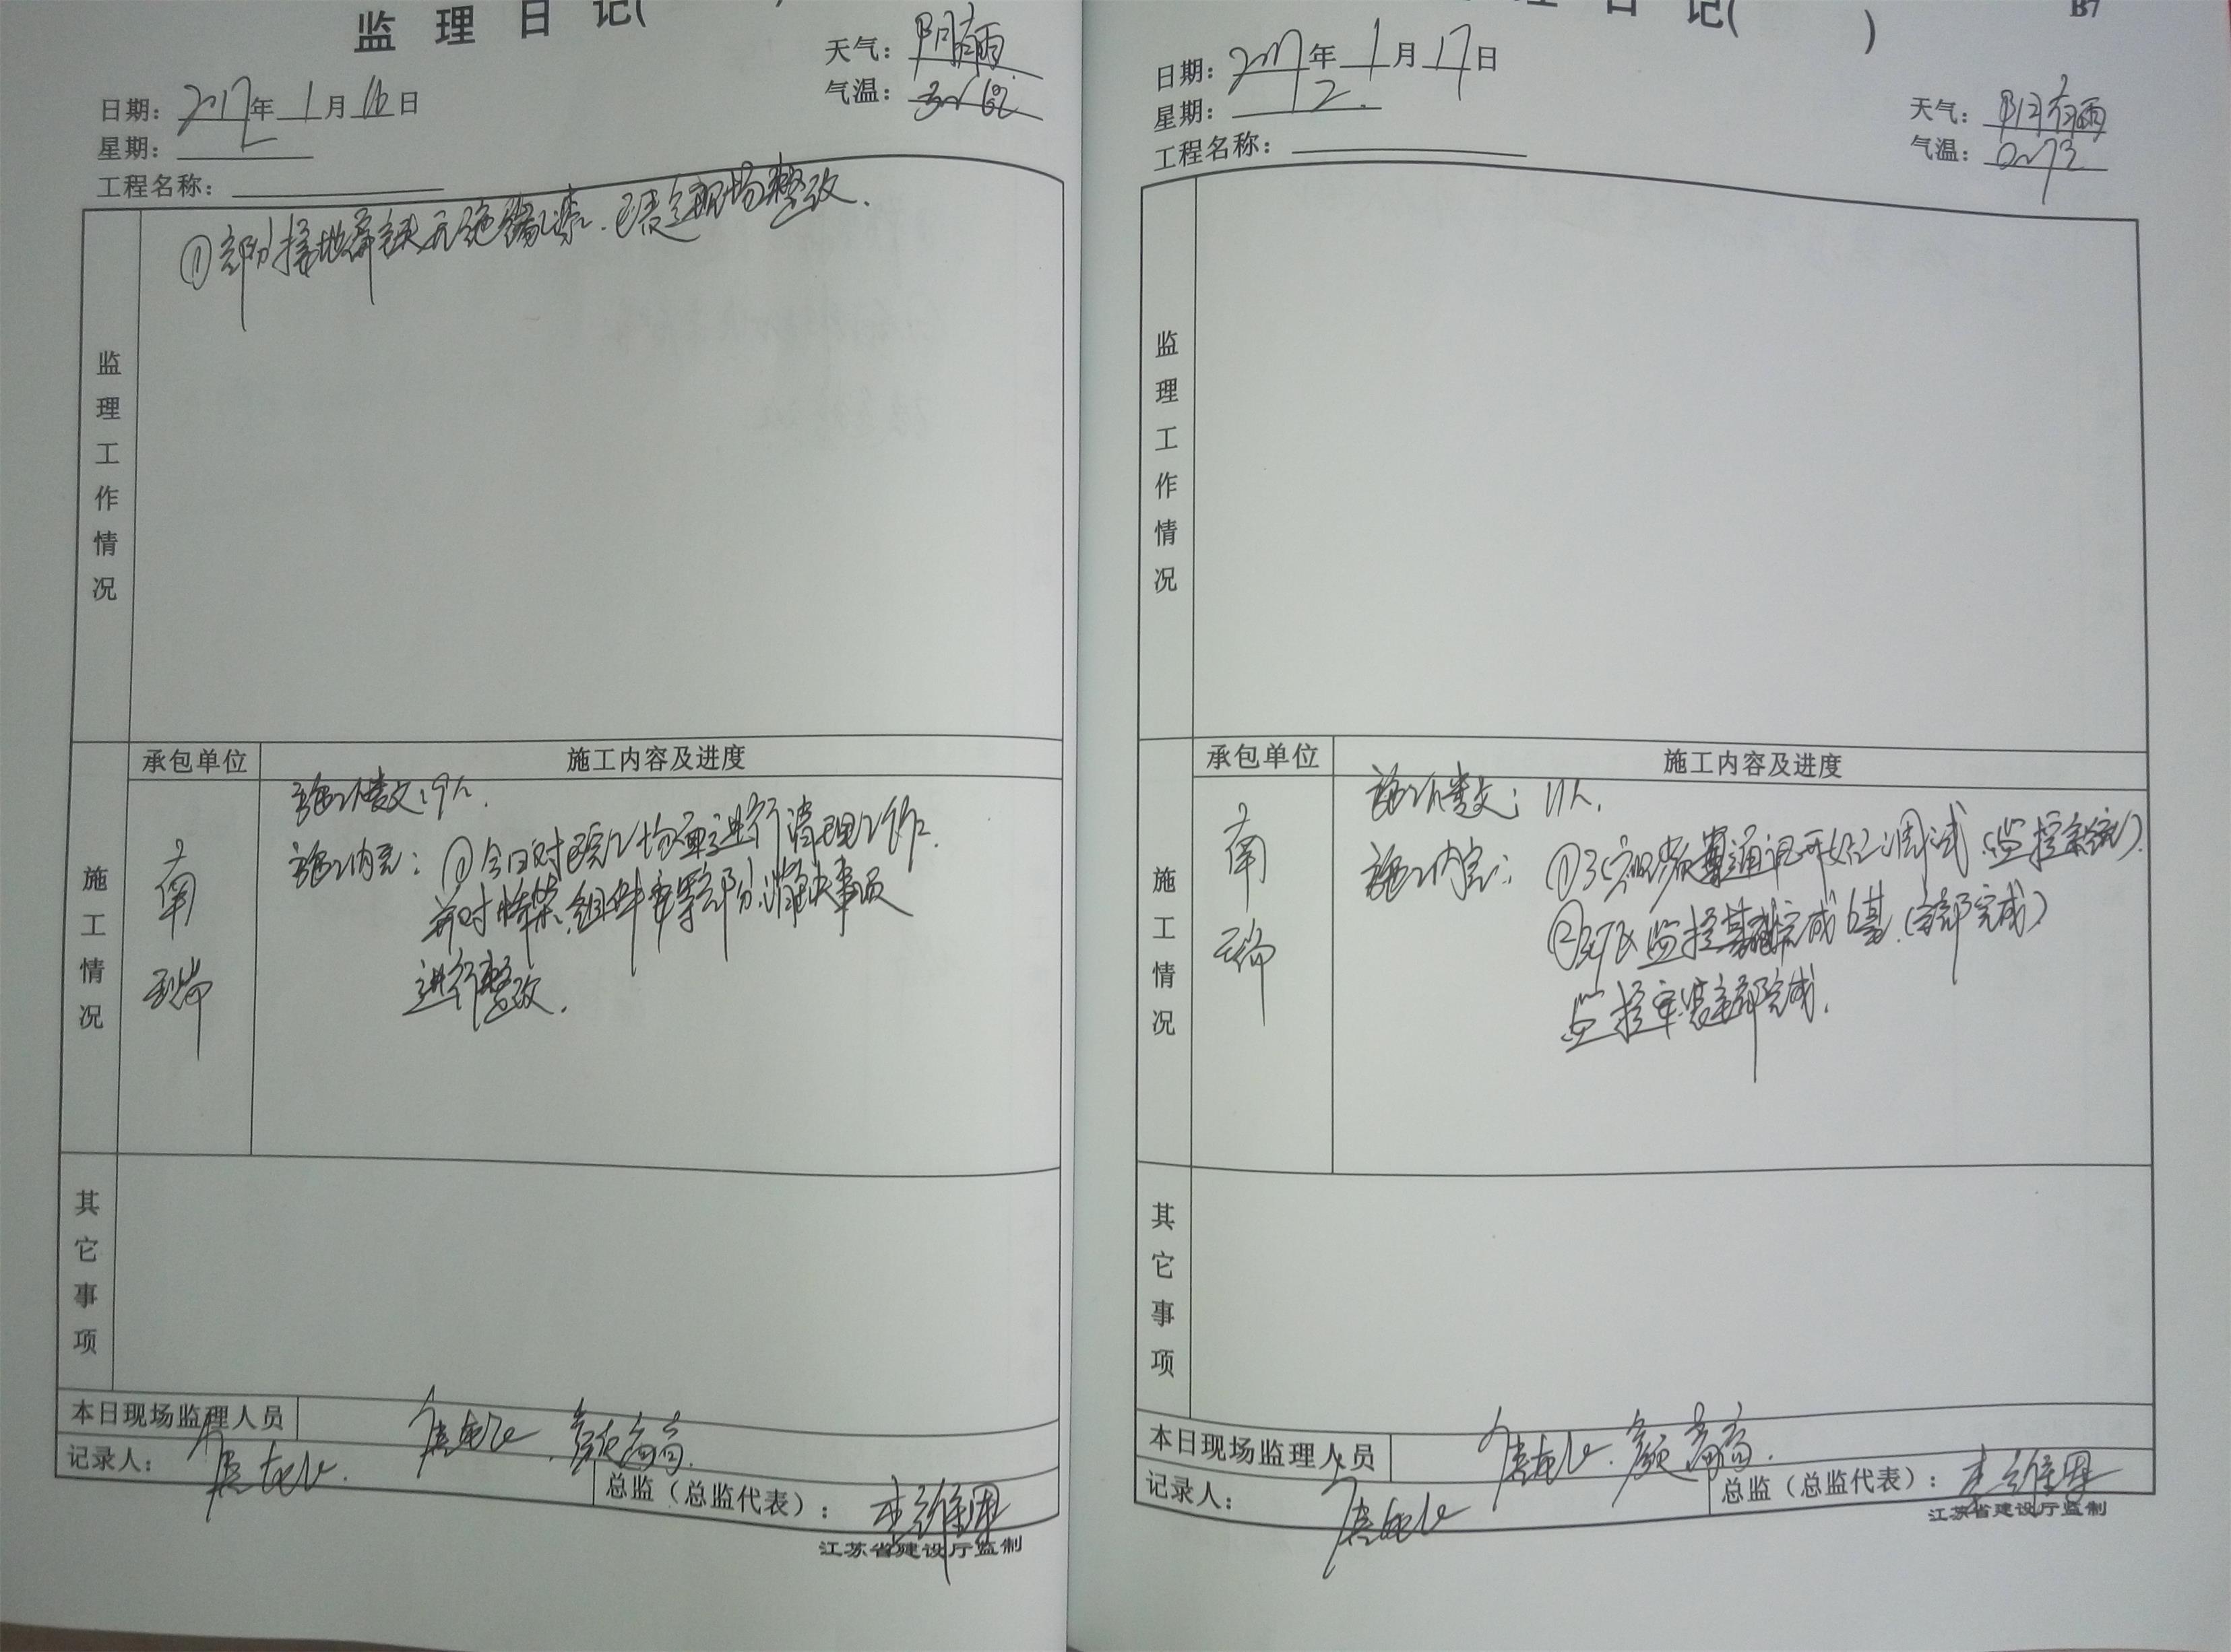 监 理 日 记(
天气：阴有雨
日期：2017年 1 月 16 日
气温：3~6℃
星期：
工程名称：
监理工作情况
①部分接地扁铁无绝缘漆.已责令现场整改.
施工情况
承包单位
施工内容及进度
南瑞
施工人数：9人.
施工内容：①今日对已完工场面进行清理工作.
并对桥架、组件安装部分消缺事项
进行整改.
其它事项
本日现场监理人员
记录人：
总监（总监代表）：
江苏省建设厅监制
理 日 记( )
B7
日期：2017年 1 月 17 日
星期：2.
天气：阴有雨
工程名称：
气温：0~7℃
监理工作情况
施工情况
承包单位
施工内容及进度
南瑞
施工人数：11人.
施工内容：①通讯开始调试（监控系统）.
监控基础完成6基.（全部完成）
监控安装全部完成.
其它事项
本日现场监理人员
记录人：
总监（总监代表）：
江苏省建设厅监制